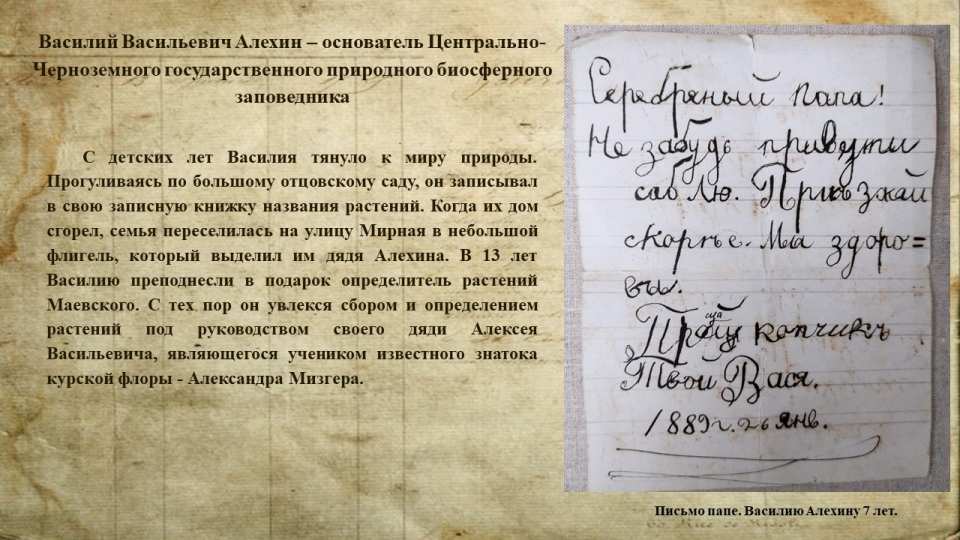 Василий Васильевич Алехин – основатель Центрально-
Черноземного государственного природного биосферного
заповедника
С детских лет Василия тянуло к миру природы.
Прогуливаясь по большому отцовскому саду, он записывал
в свою записную книжку названия растений. Когда их дом
сгорел, семья переселилась на улицу Мирная в небольшой
флигель, который выделил им дядя Алехина. В 13 лет
Василию преподнесли в подарок определитель растений
Маевского. С тех пор он увлекся сбором и определением
растений под руководством своего дяди Алексея
Васильевича, являющегося учеником известного знатока
курской флоры - Александра Мизгера.
Серебряный папа!
Не забудь привезти
саблю. Приѣзжай
скорѣе. Мы здоро=
вы.
копчикъ
Твой Вася.
1889г. 26 янв.
Письмо папе. Василию Алехину 7 лет.